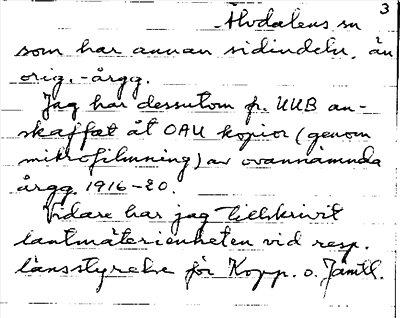 3
Älvdalens sn
som har annan sidindeln. än
orig.-årgg.
Jag har dessutom fr. UUB an-
skaffat åt OAU kopior (genom
mikrofilmning) av ovannämnda
årgg. 1916-20.
Vidare har jag tillskrivit
lantmäterienheten vid resp.
länsstyrelse för Kopp. o. Jämtl.